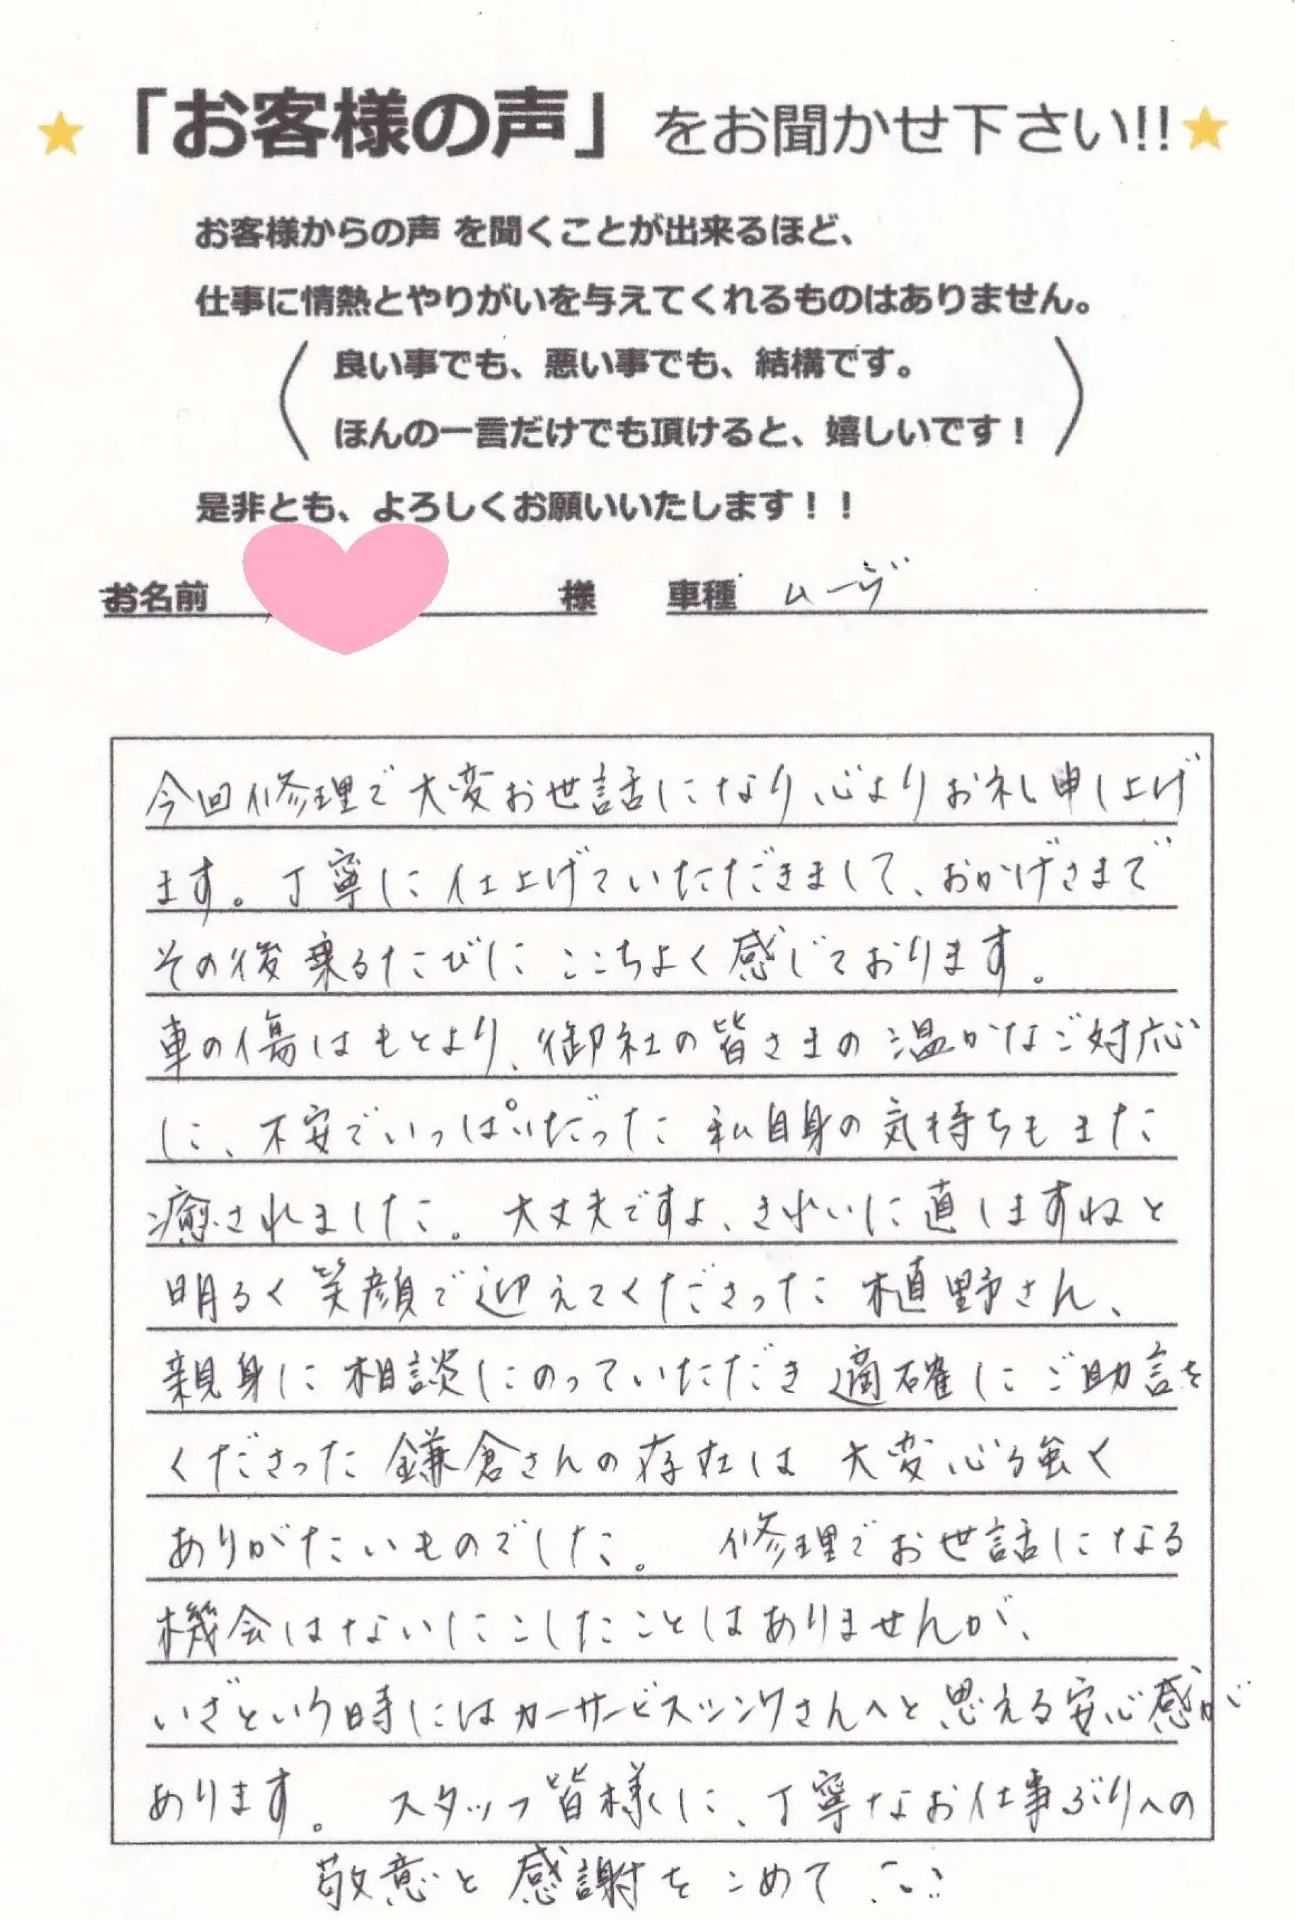 「お客様の声」をお聞かせ下さい!!
お客様からの声 を聞くことが出来るほど、
仕事に情熱とやりがいを与えてくれるものはありません。
良い事でも、悪い事でも、結構です。
ほんの一言だけでも頂けると、嬉しいです！
是非とも、よろしくお願いいたします！！
お名前 様 車種 ムーヴ
今回修理で大変お世話になり心よりお礼申し上げ
ます。丁寧に仕上げていただきまして、おかげさまで
その後乗るたびにここちよく感じております。
車の傷はもとより、御社の皆さまの温かなご対応
に、不安でいっぱいだった私自身の気持ちもまた
癒されました。大丈夫ですよ、きれいに直しますねと
明るく笑顔で迎えてくださった植野さん、
親身に相談にのっていただき適確にご助言を
くださった鎌倉さんの存在は大変心強く
ありがたいものでした。 修理でお世話になる
機会はないにこしたことはありませんが、
いざという時にはカーサービスツシンクさんへと思える安心感が
あります。 スタッフ皆様に、丁寧なお仕事ぶりへの
敬意と感謝をこめて